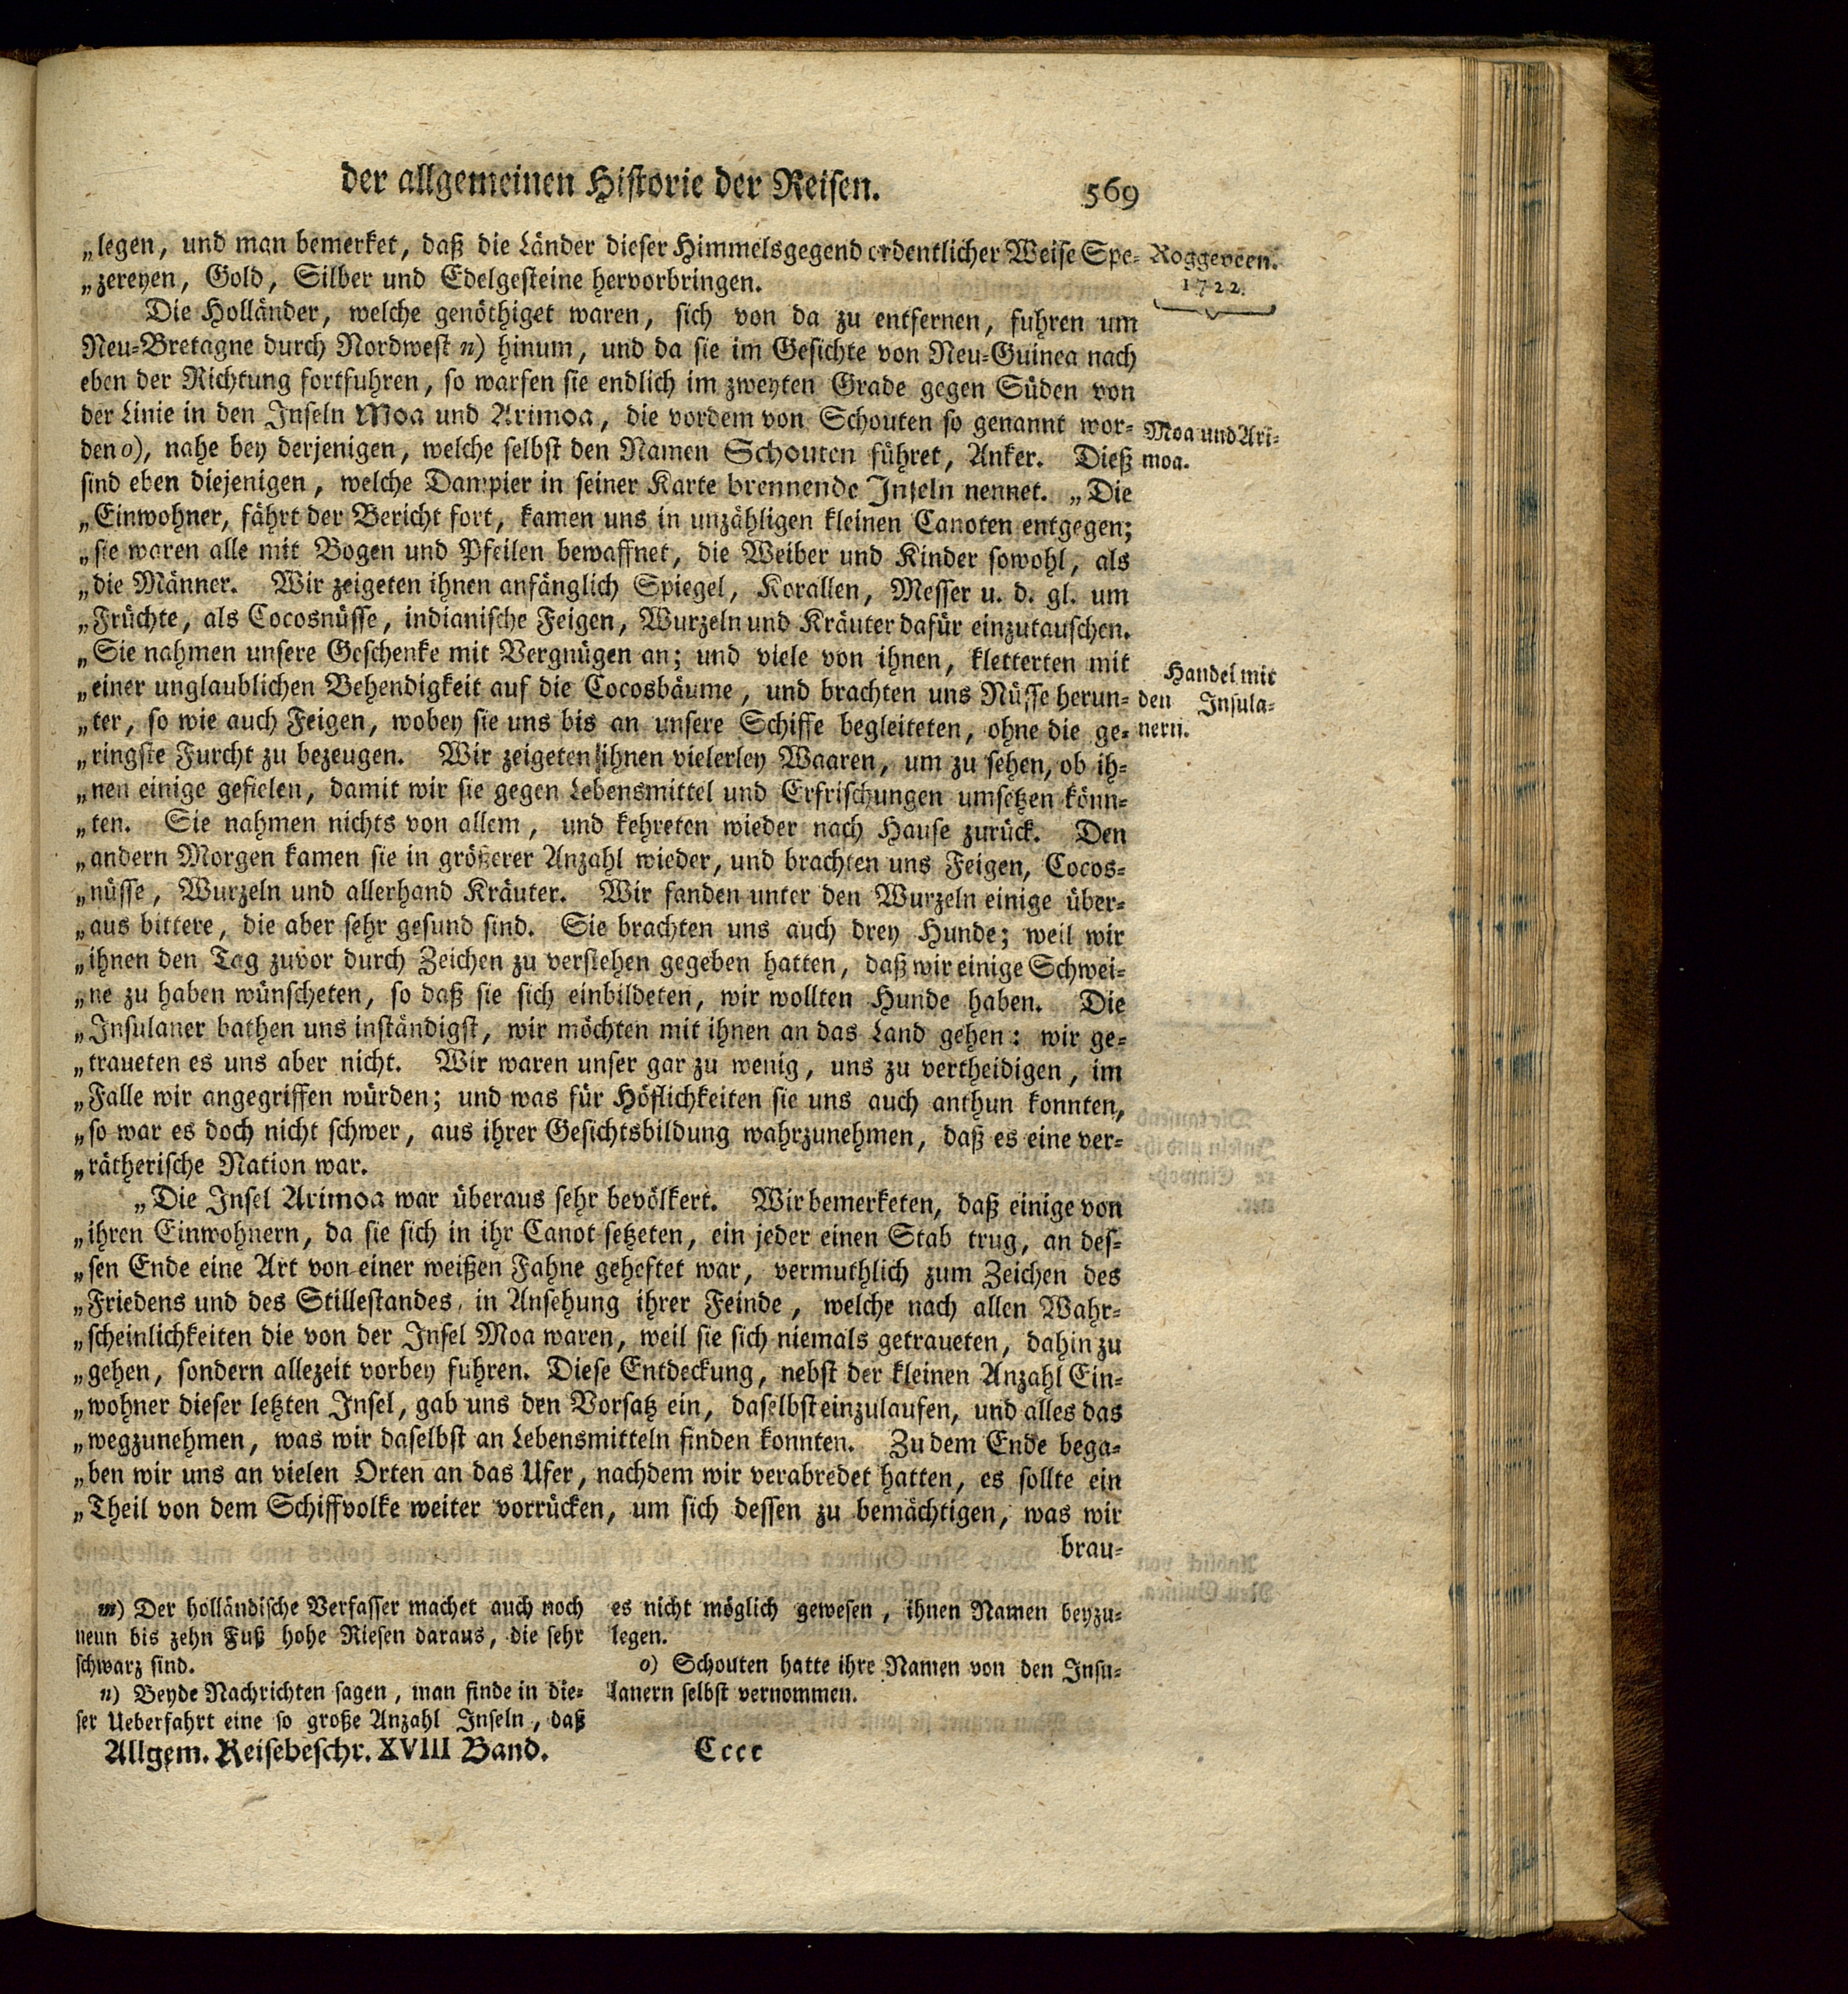 der allgemeinen Historie der Reisen. 569
„legen, und man bemerket, daß die Länder dieser Himmelsgegend ordentlicher Weise Spe-
„zereyen, Gold, Silber und Edelgesteine hervorbringen.
Roggeveen.
1722.
Die Holländer, welche genöthiget waren, sich von da zu entfernen, fuhren um
Neu-Bretagne durch Nordwest n) hinum, und da sie im Gesichte von Neu-Guinea nach
eben der Richtung fortfuhren, so warfen sie endlich im zweyten Grade gegen Süden von
der Linie in den Inseln Moa und Arimoa, die vordem von Schouten so genannt wor-
den o), nahe bey derjenigen, welche selbst den Namen Schouten führet, Anker. Dieß
Moa und Ari-
moa.
sind eben diejenigen, welche Dampier in seiner Karte brennende Inseln nennet. „Die
„Einwohner, fährt der Bericht fort, kamen uns in unzähligen kleinen Canoten entgegen;
„sie waren alle mit Bogen und Pfeilen bewaffnet, die Weiber und Kinder sowohl, als
„die Männer. Wir zeigeten ihnen anfänglich Spiegel, Korallen, Messer u. d. gl. um
„Früchte, als Cocosnüsse, indianische Feigen, Wurzeln und Kräuter dafür einzutauschen.
„Sie nahmen unsere Geschenke mit Vergnügen an; und viele von ihnen, kletterten mit
„einer unglaublichen Behendigkeit auf die Cocosbäume, und brachten uns Nüsse herun-
„ter, so wie auch Feigen, wobey sie uns bis an unsere Schiffe begleiteten, ohne die ge-
Handel mit
den Insula-
nern.
„ringste Furcht zu bezeugen. Wir zeigeten ihnen vielerley Waaren, um zu sehen, ob ih-
„nen einige gefielen, damit wir sie gegen Lebensmittel und Erfrischungen umsetzen könn-
„ten. Sie nahmen nichts von allem, und kehreten wieder nach Hause zurück. Den
„andern Morgen kamen sie in größerer Anzahl wieder, und brachten uns Feigen, Cocos-
„nüsse, Wurzeln und allerhand Kräuter. Wir fanden unter den Wurzeln einige über-
„aus bittere, die aber sehr gesund sind. Sie brachten uns auch drey Hunde; weil wir
„ihnen den Tag zuvor durch Zeichen zu verstehen gegeben hatten, daß wir einige Schwei-
„ne zu haben wünscheten, so daß sie sich einbildeten, wir wollten Hunde haben. Die
„Insulaner bathen uns inständigst, wir möchten mit ihnen an das Land gehen: wir ge-
„traueten es uns aber nicht. Wir waren unser gar zu wenig, uns zu vertheidigen, im
„Falle wir angegriffen würden; und was für Höflichkeiten sie uns auch anthun konnten,
„so war es doch nicht schwer, aus ihrer Gesichtsbildung wahrzunehmen, daß es eine ver-
„rätherische Nation war.
„Die Insel Arimoa war überaus sehr bevölkert. Wir bemerketen, daß einige von
„ihren Einwohnern, da sie sich in ihr Canot setzeten, ein jeder einen Stab trug, an des-
„sen Ende eine Art von einer weißen Fahne geheftet war, vermuthlich zum Zeichen des
„Friedens und des Stillestandes, in Ansehung ihrer Feinde, welche nach allen Wahr-
„scheinlichkeiten die von der Insel Moa waren, weil sie sich niemals getraueten, dahin zu
„gehen, sondern allezeit vorbey fuhren. Diese Entdeckung, nebst der kleinen Anzahl Ein-
„wohner dieser letzten Insel, gab uns den Vorsatz ein, daselbst einzulaufen, und alles das
„wegzunehmen, was wir daselbst an Lebensmitteln finden konnten. Zu dem Ende bega-
„ben wir uns an vielen Orten an das Ufer, nachdem wir verabredet hatten, es sollte ein
„Theil von dem Schiffvolke weiter vorrücken, um sich dessen zu bemächtigen, was wir
brau-
m) Der holländische Verfasser machet auch noch
neun bis zehn Fuß hohe Riesen daraus, die sehr
schwarz sind.
n) Beyde Nachrichten sagen, man finde in die-
ser Ueberfahrt eine so große Anzahl Inseln, daß
es nicht möglich gewesen, ihnen Namen beyzu-
legen.
o) Schouten hatte ihre Namen von den Insu-
lanern selbst vernommen.
Allgem. Reisebeschr. XVIII Band. Cccc